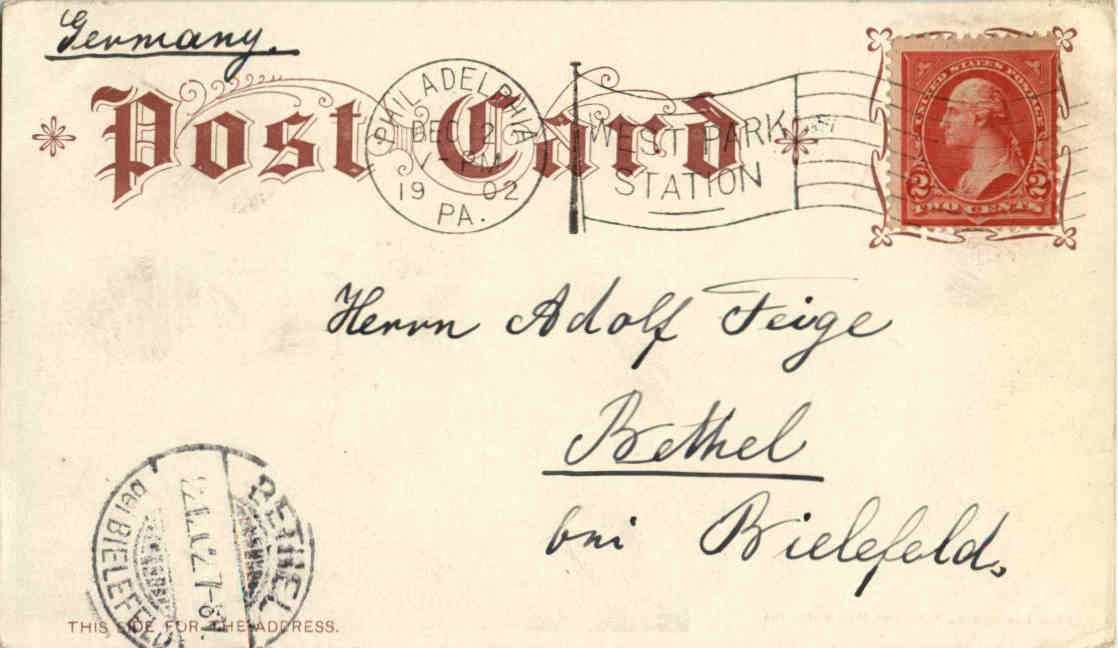 Germany.
Post Card
PHILADELPHIA
DEC 2
PM
19 02
PA.
WEST PARK
STATION
UNITED STATES POSTAGE
2 2
TWO CENTS
Herrn Adolf Feige
Bethel
bei Bielefeld,
BETHEL
bei BIELEFELD
THIS SIDE FOR THE ADDRESS.